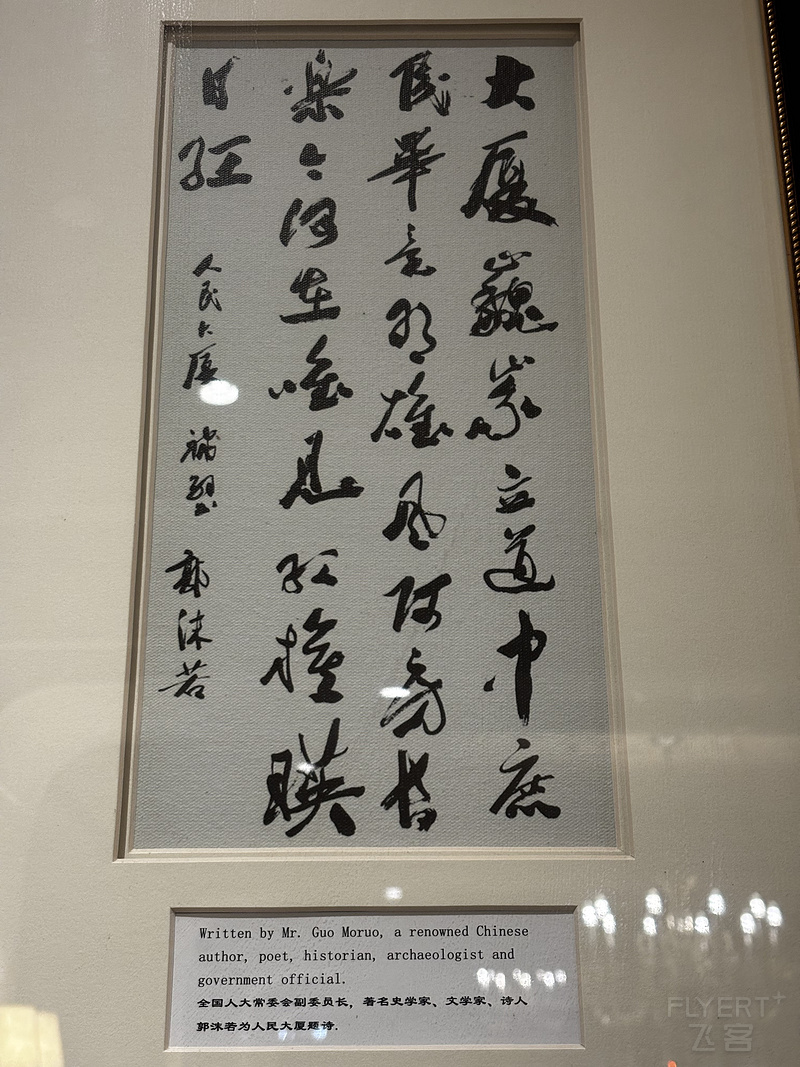 大厦巍峩立道中庶
民畢竟有雄風阿房昔
樂今何在唯見红映
日红
人民大厦 補壁 郭沫若
Written by Mr. Guo Moruo, a renowned Chinese
author, poet, historian, archaeologist and
government official.
全国人大常委会副委员长，著名史学家、文学家、诗人
郭沫若为人民大厦题诗.
FLYERT+
飞客